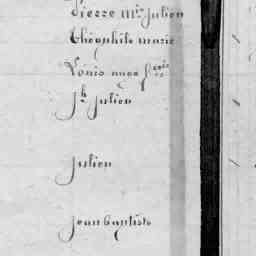 Pierre m^ie Julien
théophile marie
Louis ange f^ois
J^h Julien
Julien
jean baptiste